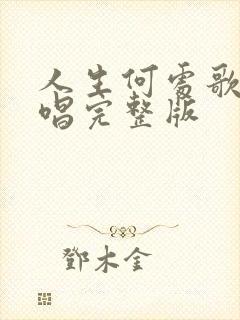 人生何处歌
唱完整版
鄧木金